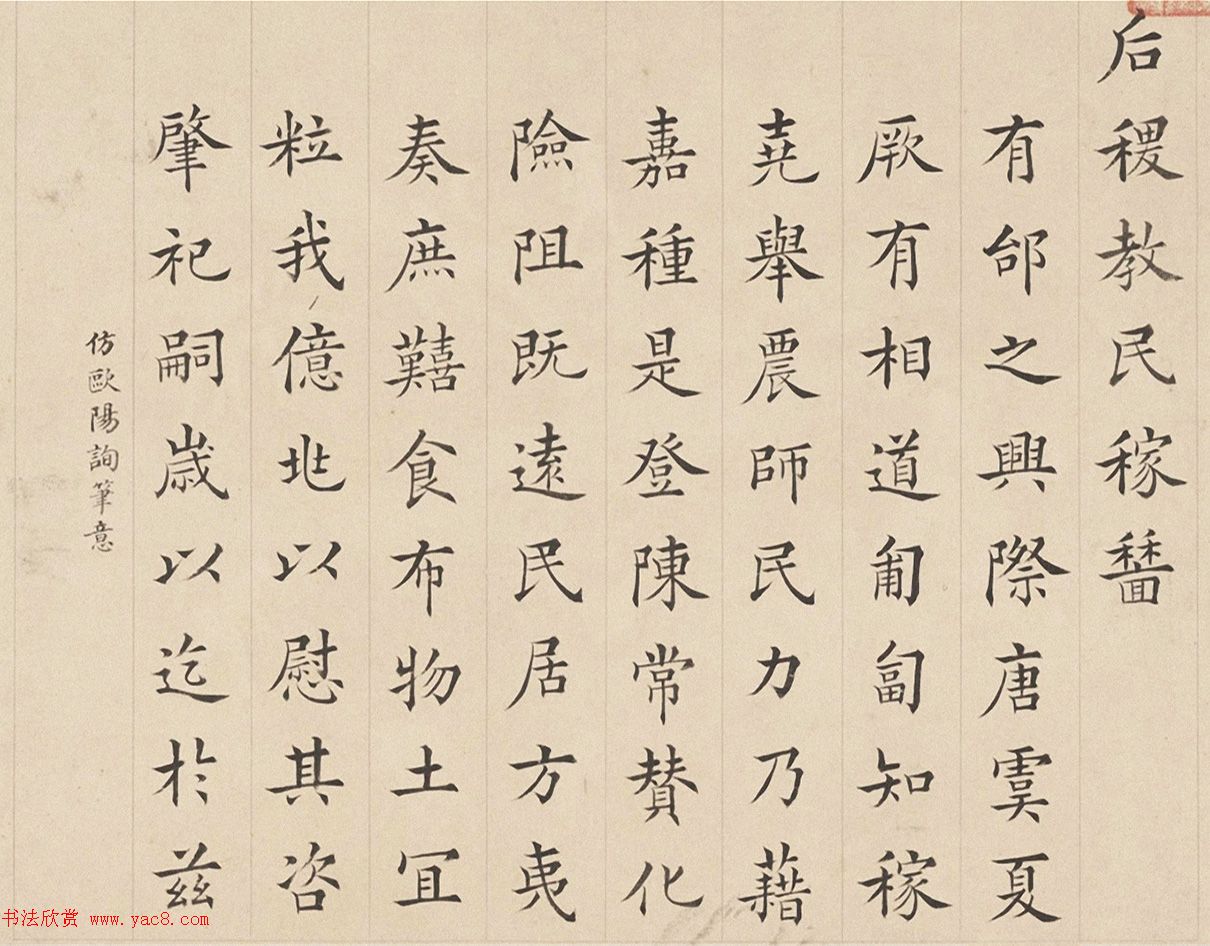 后稷教民稼穡
有邰之興際唐虞夏
厥有相道匍匐知稼
堯舉農師民力乃藉
嘉種是登陳常贊化
險阻既遠民居方夷
奏庶艱食布物土宜
粒我億兆以慰其咨
肇祀嗣歲以迄於茲
仿歐陽詢筆意
书法欣赏 www.yac8.com